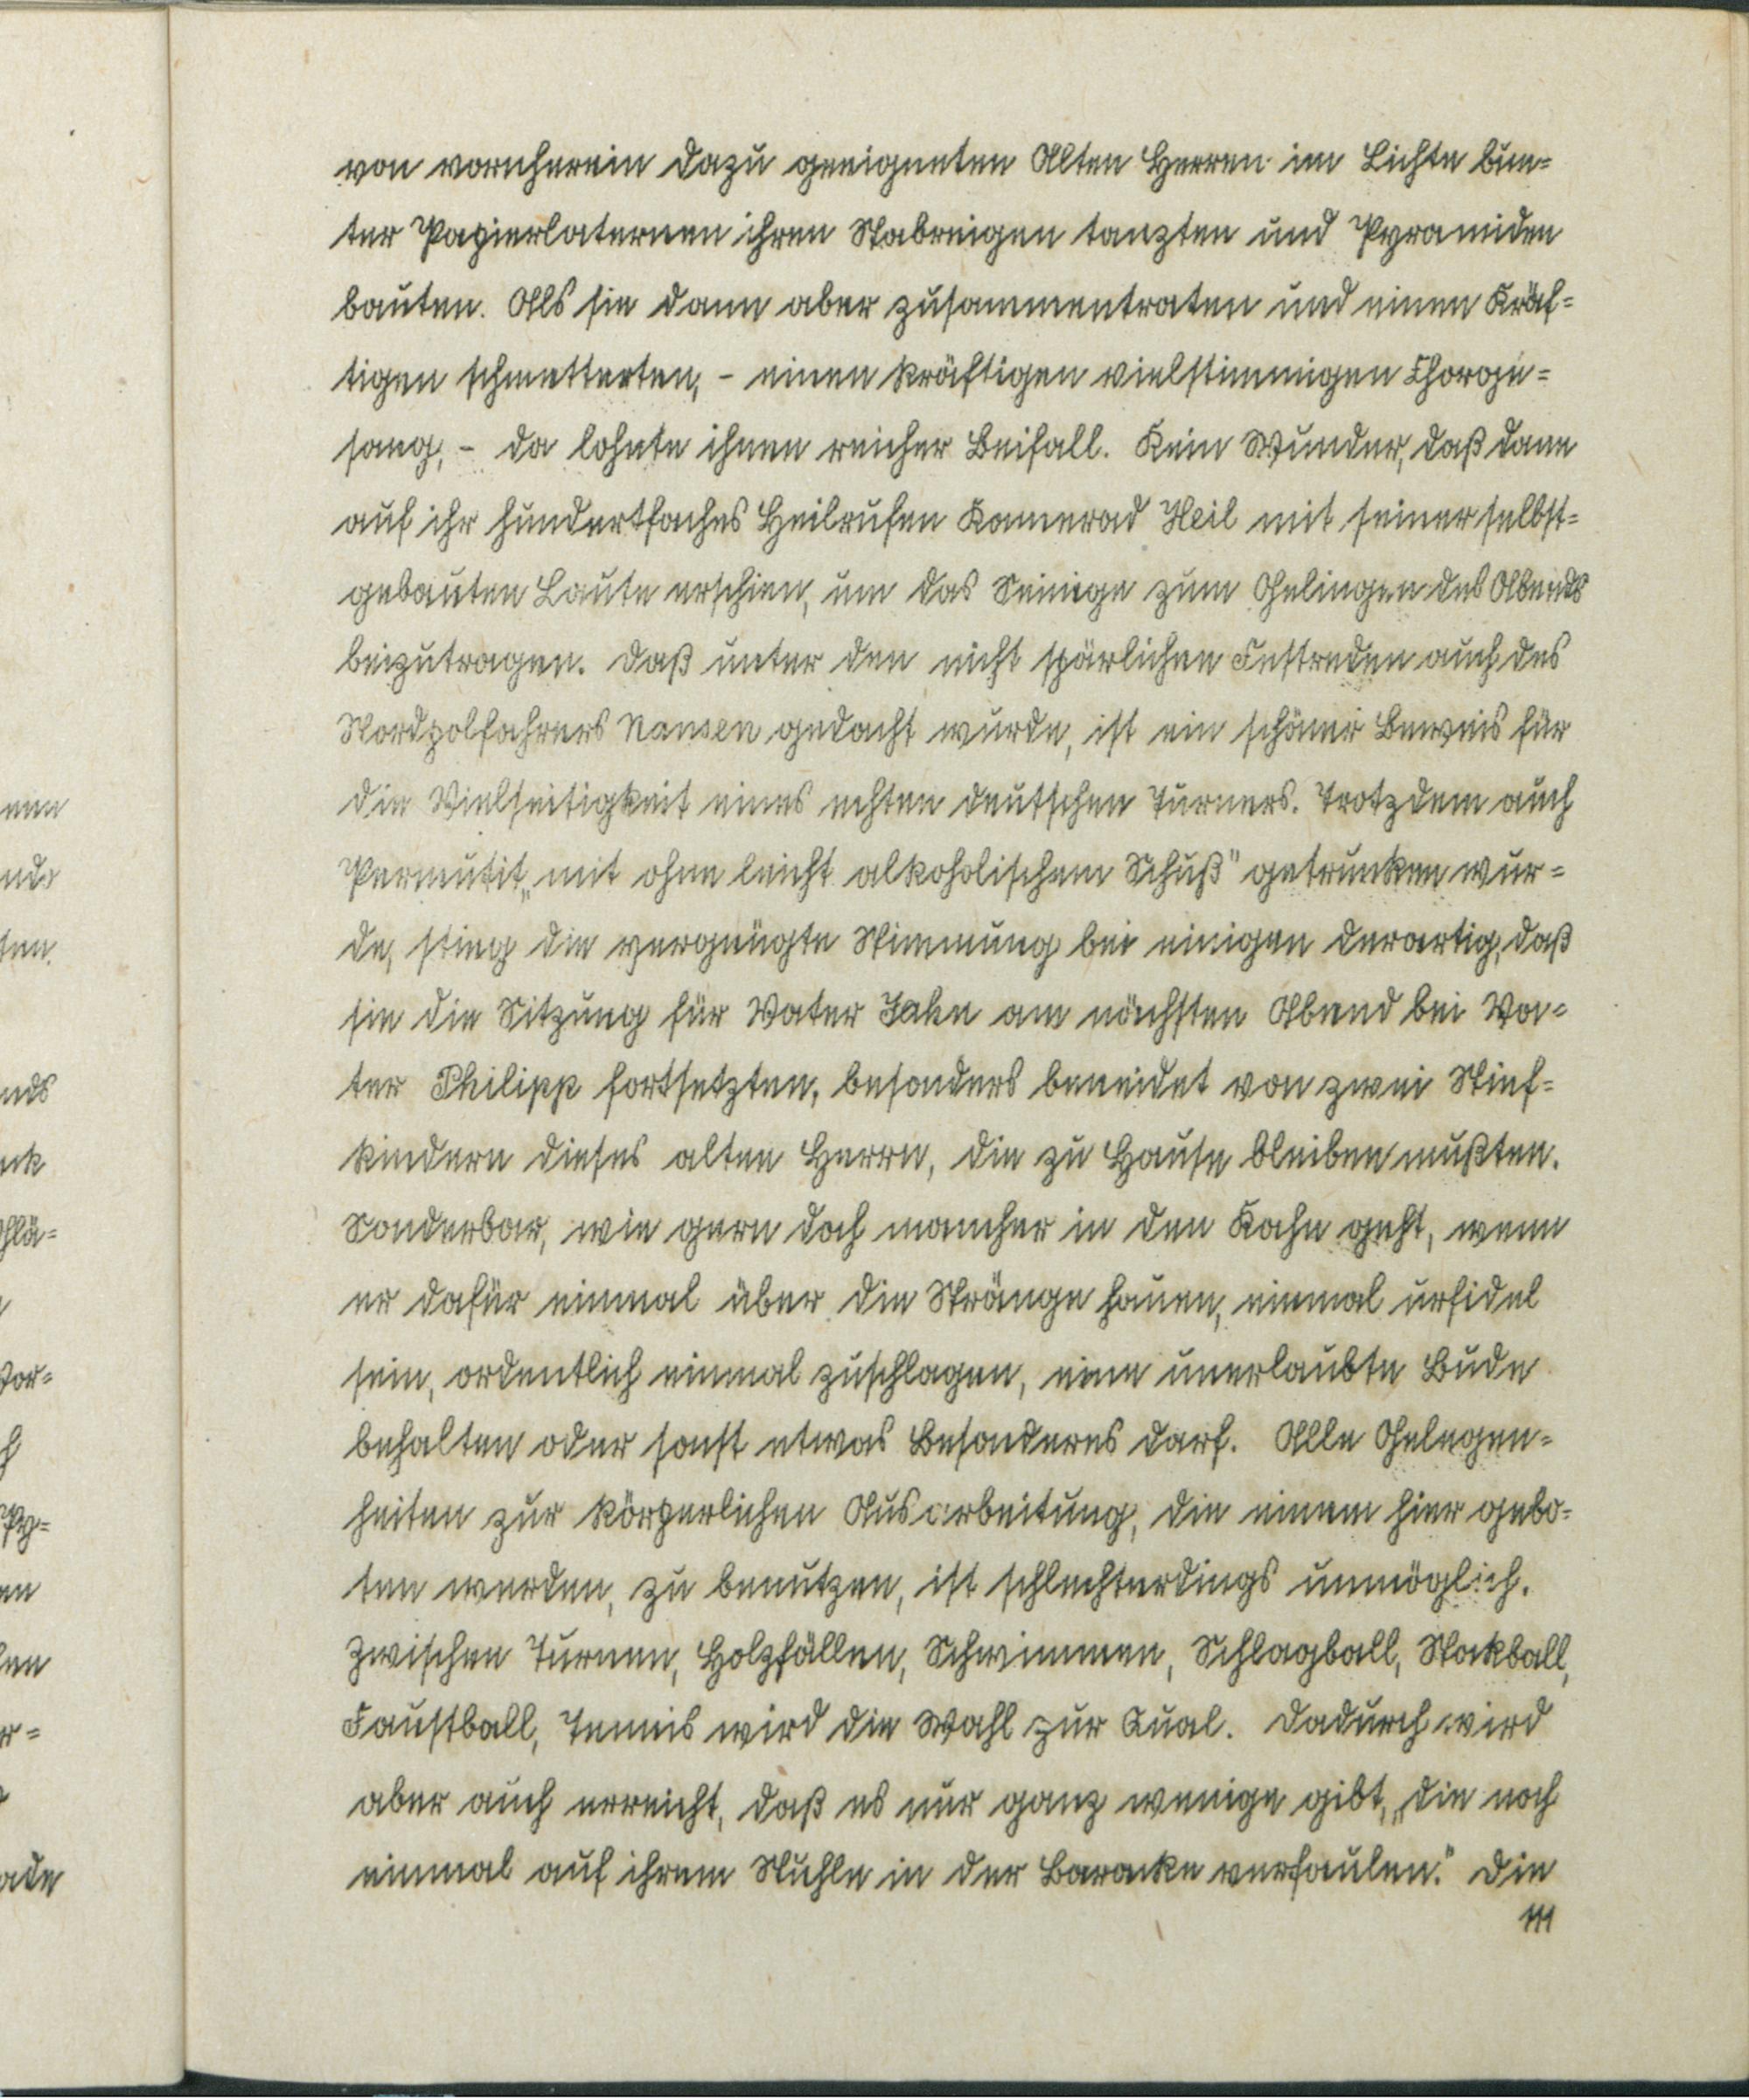 von vornherein dazu geeigneten Alten Herren im Lichte bun=
ter Papierlaternen ihren Stabreigen tanzten und Pyramiden
bauten. Als sie dann aber zusammentraten und einen Kräf=
tigen schmetterten, – einen kräftigen vielstimmigen Chorge=
sang, – da lohnte ihnen reicher Beifall. Kein Wunder, daß dann
auf ihr hundertfaches Heilrufen Kamerad Heil mit seiner selbst=
gebauten Laute erschien, um das Seinige zum Gelingen des Abends
beizutragen. Daß unter den nicht spärlichen Festreden auch des
Nordpolfahrers Nansen gedacht wurde, ist ein schöner Beweis für
die Vielseitigkeit eines echten deutschen Turners. Trotzdem auch
Permutit „mit ohne leicht alkoholischem Schuß" getrunken wur=
de, stieg die vergnügte Stimmung bei einigen derartig, daß
sie die Sitzung für Vater Jahn am nächsten Abend bei Va=
ter Philipp fortsetzten, besonders beneidet von zwei Stief=
kindern dieses alten Herrn, die zu Hause bleiben mußten.
Sonderbar, wie gern doch mancher in den Kahn geht, wenn
er dafür einmal über die Stränge hauen, einmal urfidel
sein, ordentlich einmal zuschlagen, eine unerlaubte Bude
behalten oder sonst etwas Besonderes darf. Alle Gelegen=
heiten zur körperlichen Ausarbeitung, die einem hier gebo=
ten werden, zu benutzen, ist schlechterdings unmöglich.
Zwischen Turnen, Holzfällen, Schwimmen, Schlagball, Stockball,
Faustball, Tennis wird die Wahl zur Qual. Dadurch wird
aber auch erreicht, daß es nur ganz wenige gibt, „die noch
einmal auf ihrem Stuhle in der Baracke verfaulen." Die
111